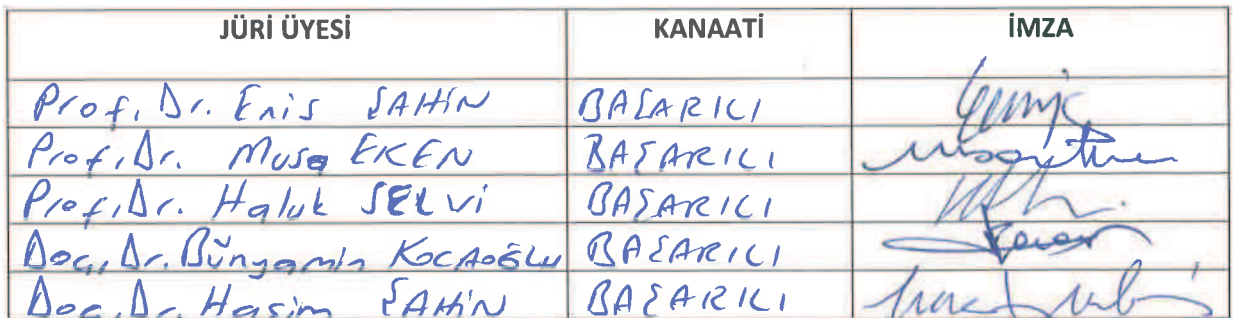 JÜRİ ÜYESİ KANAATİ İMZA
Prof. Dr. Enis ŞAHİN BAŞARILI
Prof. Dr. Musa EKEN BAŞARILI
Prof. Dr. Haluk SELVİ BAŞARILI
Doç. Dr. Bünyamin KOCAOĞLU BAŞARILI
Doç. Dr. Haşim ŞAHİN BAŞARILI